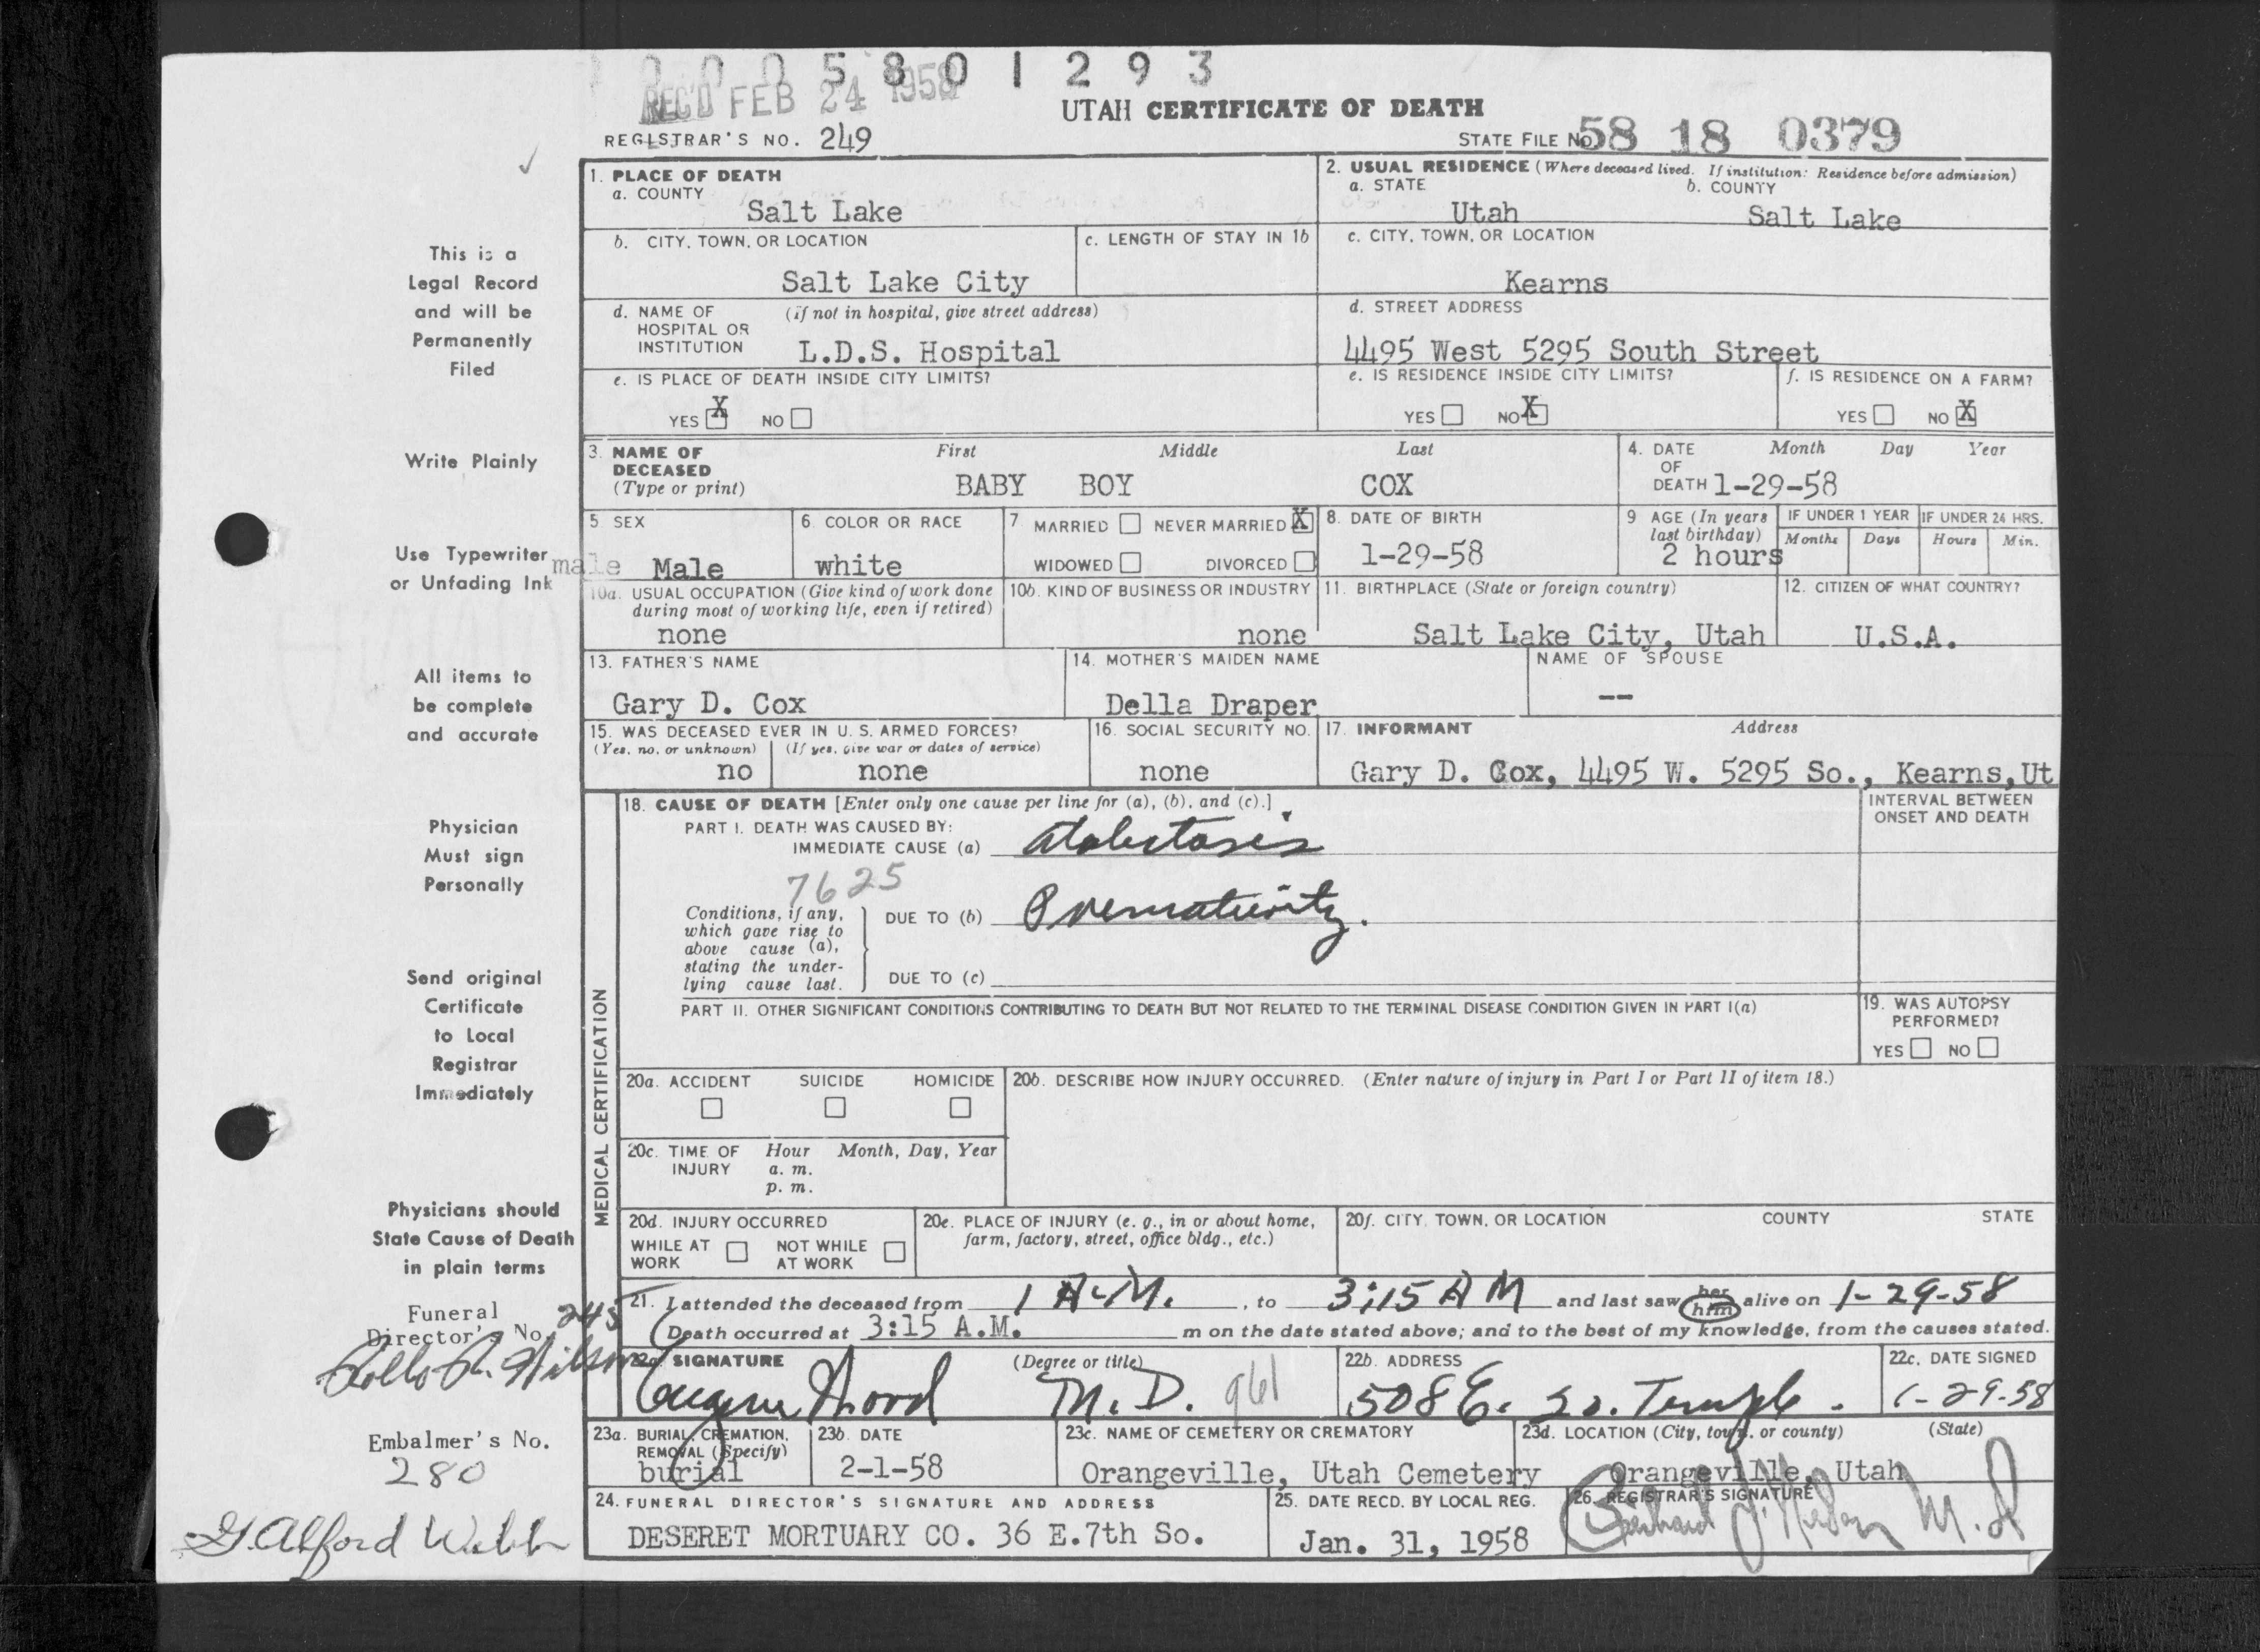 0 0 0 5 8 0 1 2 9 3
REC'D FEB 24 1958
UTAH CERTIFICATE OF DEATH
REGISTRAR'S NO. 249
STATE FILE NO. 58 18 0379
1. PLACE OF DEATH
a. COUNTY
Salt Lake
2. USUAL RESIDENCE (Where deceased lived. If institution: Residence before admission)
a. STATE b. COUNTY
Utah Salt Lake
b. CITY, TOWN, OR LOCATION
Salt Lake City
c. LENGTH OF STAY IN 1b
c. CITY, TOWN, OR LOCATION
Kearns
d. NAME OF (if not in hospital, give street address)
HOSPITAL OR
INSTITUTION L.D.S. Hospital
d. STREET ADDRESS
4495 West 5295 South Street
e. IS PLACE OF DEATH INSIDE CITY LIMITS?
YES X NO
e. IS RESIDENCE INSIDE CITY LIMITS?
YES NO X
f. IS RESIDENCE ON A FARM?
YES NO X
3. NAME OF First Middle Last
DECEASED
(Type or print) BABY BOY COX
4. DATE Month Day Year
OF
DEATH 1-29-58
5 SEX
male Male
6. COLOR OR RACE
white
7 MARRIED NEVER MARRIED X
WIDOWED DIVORCED
8. DATE OF BIRTH
1-29-58
9 AGE (In years
last birthday)
2 hours
IF UNDER 1 YEAR
Months Days
IF UNDER 24 HRS.
Hours Min.
10a. USUAL OCCUPATION (Give kind of work done
during most of working life, even if retired)
none
10b. KIND OF BUSINESS OR INDUSTRY
none
11. BIRTHPLACE (State or foreign country)
Salt Lake City, Utah
12. CITIZEN OF WHAT COUNTRY?
U.S.A.
13. FATHER'S NAME
Gary D. Cox
14. MOTHER'S MAIDEN NAME
Della Draper
NAME OF SPOUSE
--
15. WAS DECEASED EVER IN U. S. ARMED FORCES?
(Yes, no, or unknown) (If yes, give war or dates of service)
no none
16. SOCIAL SECURITY NO.
none
17. INFORMANT Address
Gary D. Cox, 4495 W. 5295 So., Kearns,Ut
MEDICAL CERTIFICATION
18. CAUSE OF DEATH [Enter only one cause per line for (a), (b), and (c).]
PART I. DEATH WAS CAUSED BY:
IMMEDIATE CAUSE (a) Atalectasis
7625
Conditions, if any,
which gave rise to
above cause (a),
stating the under-
lying cause last.
DUE TO (b) Prematurity.
DUE TO (c)
INTERVAL BETWEEN
ONSET AND DEATH
PART II. OTHER SIGNIFICANT CONDITIONS CONTRIBUTING TO DEATH BUT NOT RELATED TO THE TERMINAL DISEASE CONDITION GIVEN IN PART I(a)
19. WAS AUTOPSY
PERFORMED?
YES NO
20a. ACCIDENT SUICIDE HOMICIDE
20b. DESCRIBE HOW INJURY OCCURRED. (Enter nature of injury in Part I or Part II of item 18.)
20c. TIME OF Hour Month, Day, Year
INJURY a. m.
p. m.
20d. INJURY OCCURRED
WHILE AT NOT WHILE
WORK AT WORK
20e. PLACE OF INJURY (e. g., in or about home,
farm, factory, street, office bldg., etc.)
20f. CITY, TOWN, OR LOCATION COUNTY STATE
21. I attended the deceased from 1 A.M. , to 3:15 AM and last saw her him alive on 1-29-58
Death occurred at 3:15 A.M. m on the date stated above; and to the best of my knowledge, from the causes stated.
22a. SIGNATURE (Degree or title)
Eugene Wood M.D. 961
22b. ADDRESS
508 E. So. Temple.
22c. DATE SIGNED
1-29-58
23a. BURIAL, CREMATION,
REMOVAL (Specify)
burial
23b. DATE
2-1-58
23c. NAME OF CEMETERY OR CREMATORY
Orangeville, Utah Cemetery
23d. LOCATION (City, town, or county) (State)
Orangeville, Utah
24. FUNERAL DIRECTOR'S SIGNATURE AND ADDRESS
DESERET MORTUARY CO. 36 E.7th So.
25. DATE RECD. BY LOCAL REG.
Jan. 31, 1958
26. REGISTRAR'S SIGNATURE
M.D
This is a
Legal Record
and will be
Permanently
Filed
Write Plainly
Use Typewriter
or Unfading Ink
All items to
be complete
and accurate
Physician
Must sign
Personally
Send original
Certificate
to Local
Registrar
Immediately
Physicians should
State Cause of Death
in plain terms
Funeral
Director's No. 245
Embalmer's No.
280
G. Alford Webb